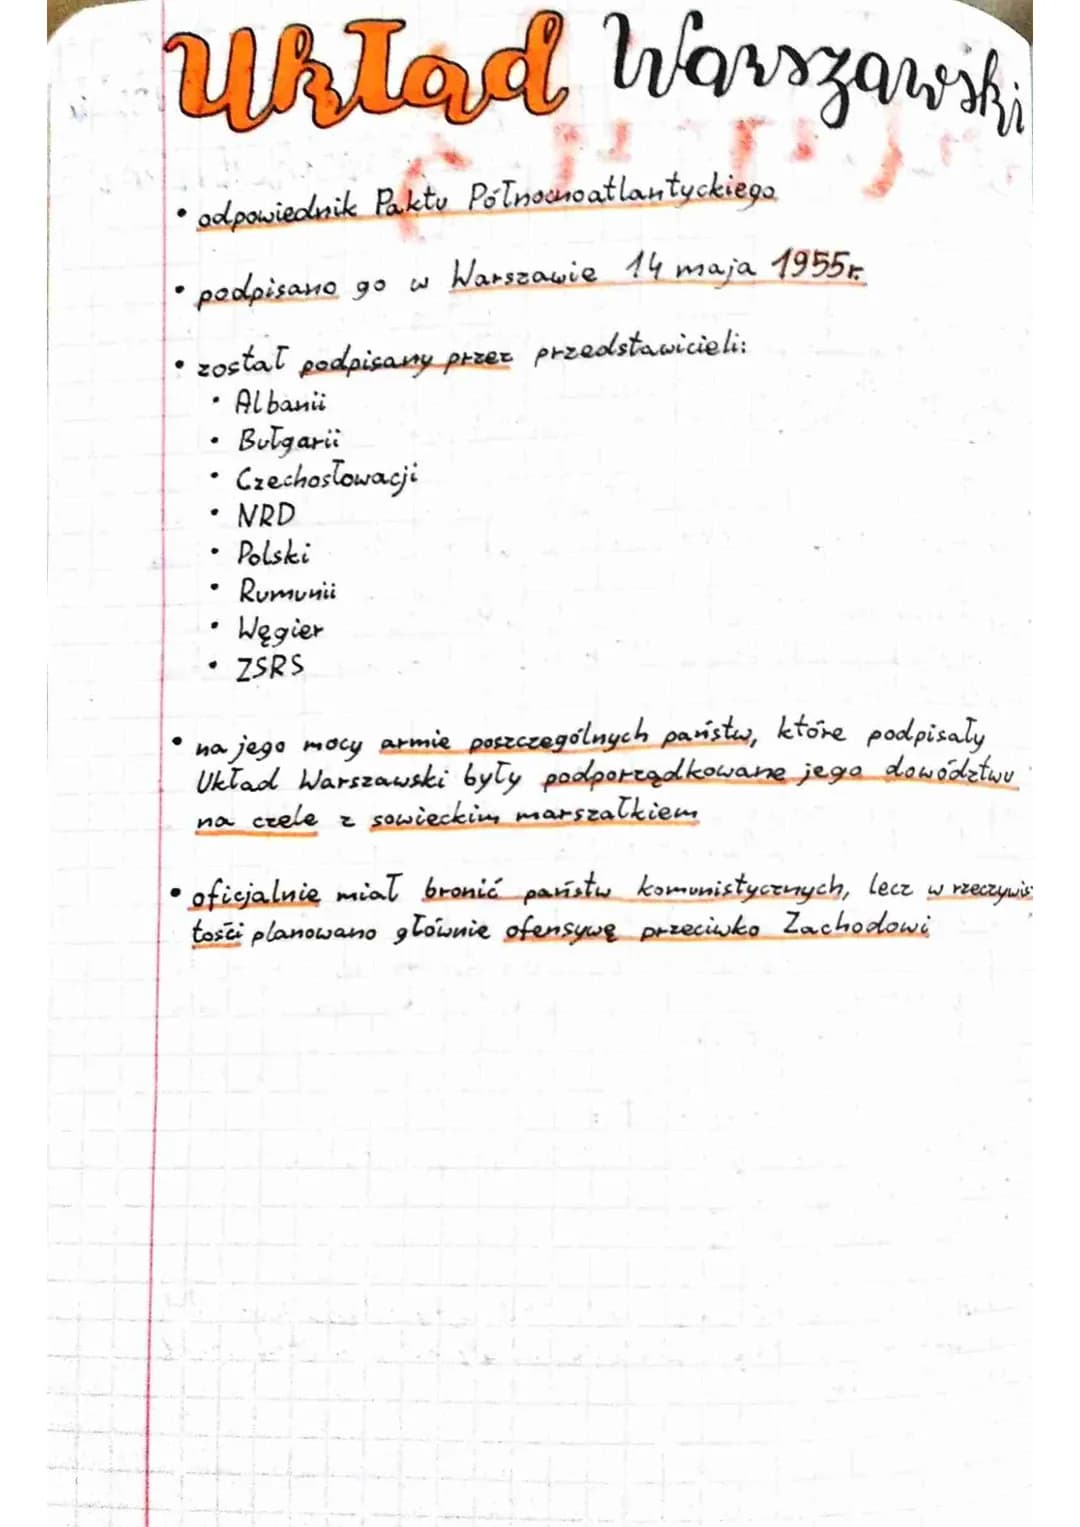 Układ Warszawski
• odpowiednik Paktu Północnoatlantyckiego
• podpisano go w Warszawie 14 maja 1955r.
• został podpisany przez przedstawicieli:
• Albanii
• Bułgarii
• Czechosłowacji
• NRD
• Polski
• Rumunii
• Węgier
• ZSRS
• na jego mocy armie poszczególnych państw, które podpisały
Układ Warszawski były podporządkowane jego dowództwu
na czele z sowieckim marszałkiem
• oficjalnie miał bronić państw komunistycznych, lecz w rzeczywis
tości planowano głównie ofensywę przeciwko Zachodowi